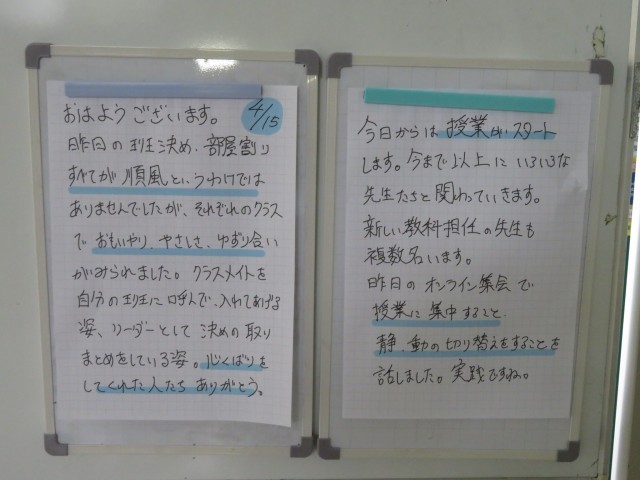 おはようございます。
4/15
昨日の班決め、部屋割り
すべてが順風というわけでは
ありませんでしたが、それぞれのクラス
で おもいやり、やさしさ、ゆずり合い
がみられました。クラスメイトを
自分の班に呼んで、入れてあげる
姿、リーダーとして 決めの取り
まとめをしている姿。心くばりを
してくれた人たち ありがとう。
今日からは 授業がスタート
します。今まで以上に いろいろな
先生たちと関わっていきます。
新しい教科担任の先生も
複数名います。
昨日の オンライン集会で
授業に集中すること、
静、動の切り替えをすることを
話しました。実践ですね。